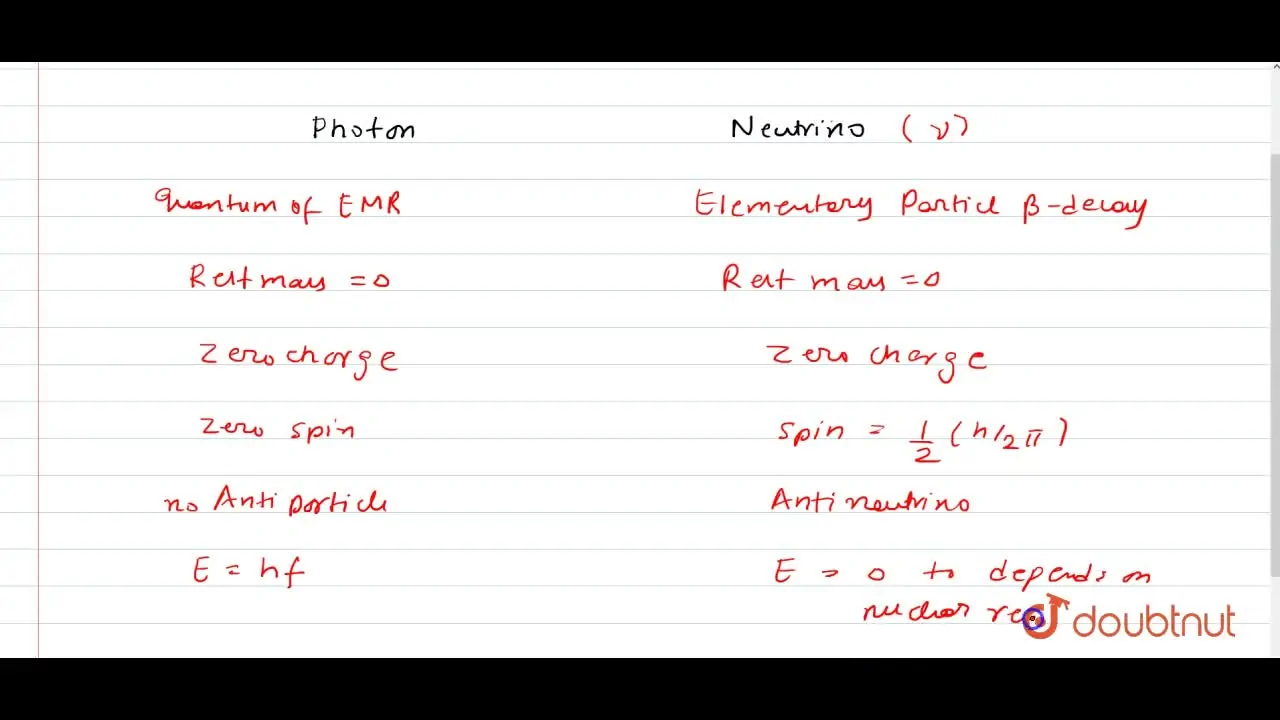 Photon Neutrino (ν)
Quantum of EMR Elementary Particl β-decay
Rest mass = 0 Rest mass = 0
Zero charge Zero charge
Zero spin spin = 1/2 (h/2π)
no Anti particle Anti neutrino
E = hf E = 0 to depends on
nuclear rea
doubtnut